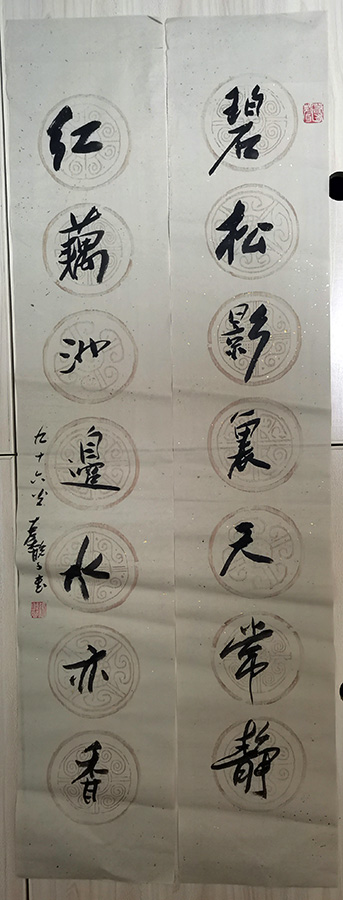 碧松影裏天常靜
紅藕池邊水亦香
九十六叟